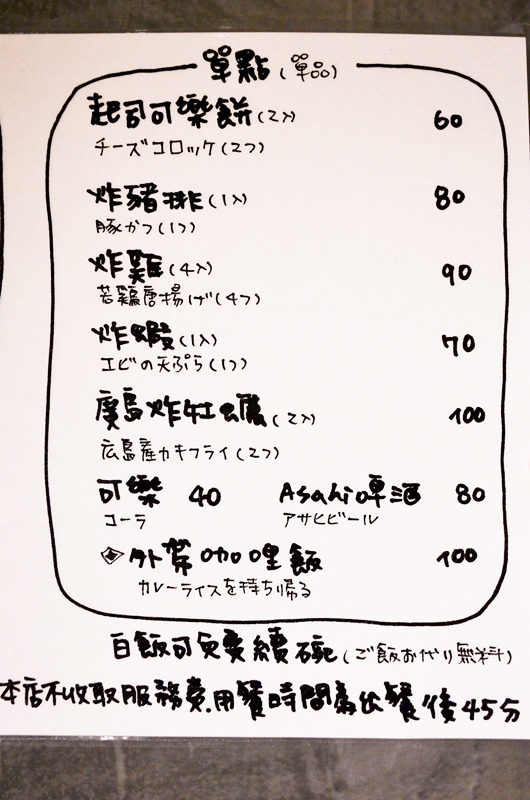 單點(單品)
起司可樂餅(2入) 60
チーズコロッケ(2つ)
炸豬排(1入) 80
豚かつ(1つ)
炸雞(4入) 90
若鶏唐揚げ(4つ)
炸蝦(1入) 70
エビの天ぷら(1つ)
廣島炸牡蠣(2入) 100
広島産カキフライ(2つ)
可樂 40 Asahi啤酒 80
コーラ アサヒビール
外帶咖哩飯 100
カレーライスを持ち帰る
白飯可免費續碗(ご飯お代り無料)
本店不收取服務費.用餐時間為出餐後45分